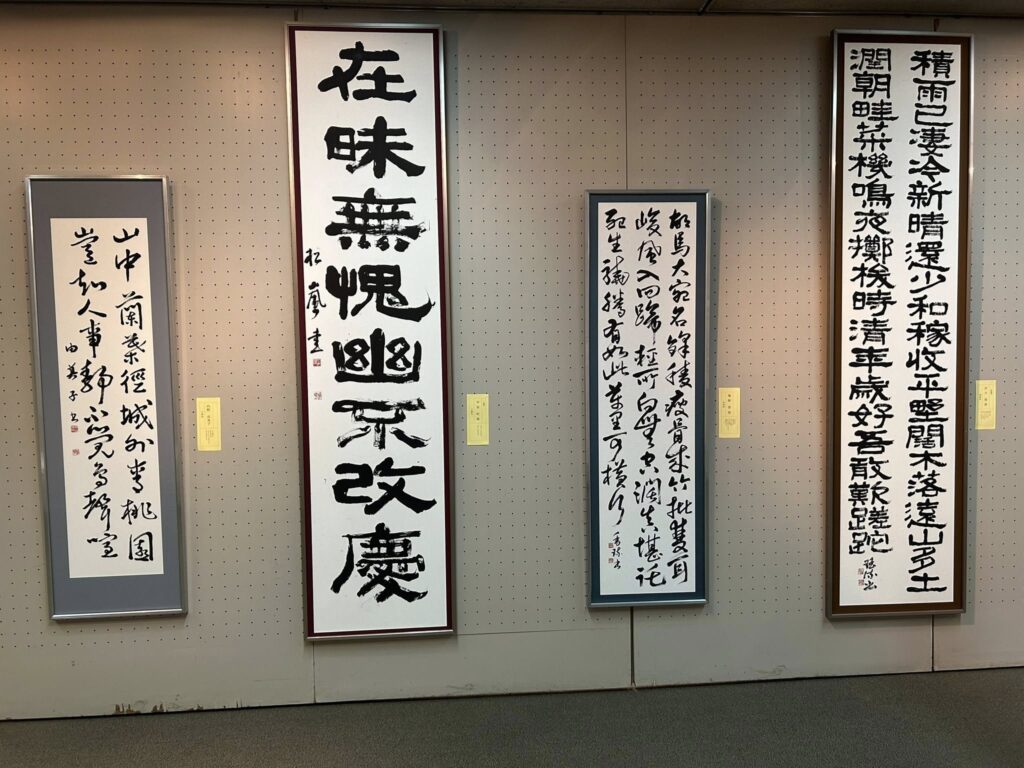 積雨已凄冷新晴還少和稼收平墅闊木落遠山多土
潤朝畦菜機鳴夜擲梭時清年歲好吾敢歎蹉跎
胡馬大宛名鋒稜瘦骨成竹批雙耳
峻風入四蹄輕所向無空闊真堪託
死生驍騰有如此萬里可橫行
在昧無愧幽不改慶
松嵐書
山中蘭葉徑城外李桃園
豈知人事靜不覺鳥聲喧
由美子書